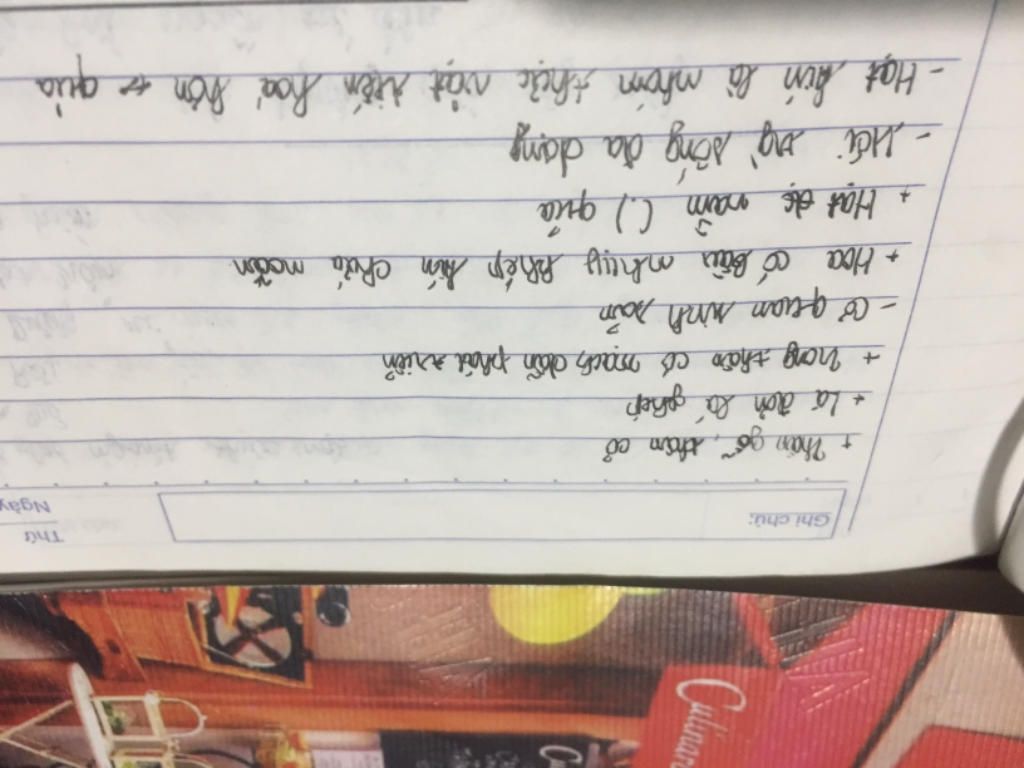 Ghi chú:
Thứ
Ngày
+ Thân gỗ, thân cỏ
+ Lá đơn lá ghép
+ Trong thân có mạch dẫn phát triển
- Cơ quan sinh sản
+ Hoa có bầu nhụy khép kín chứa noãn
+ Hạt đc nằm (.) quả
- Môi trg sống đa dạng
- Hạt kín là nhóm thực vật tiến hoá hơn quả
Culinar